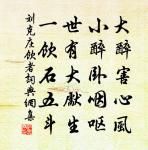 大醉害心風
小醉卧咽呕
世有大獻生
一飲石五斗
刘克庄飲者詞典網集